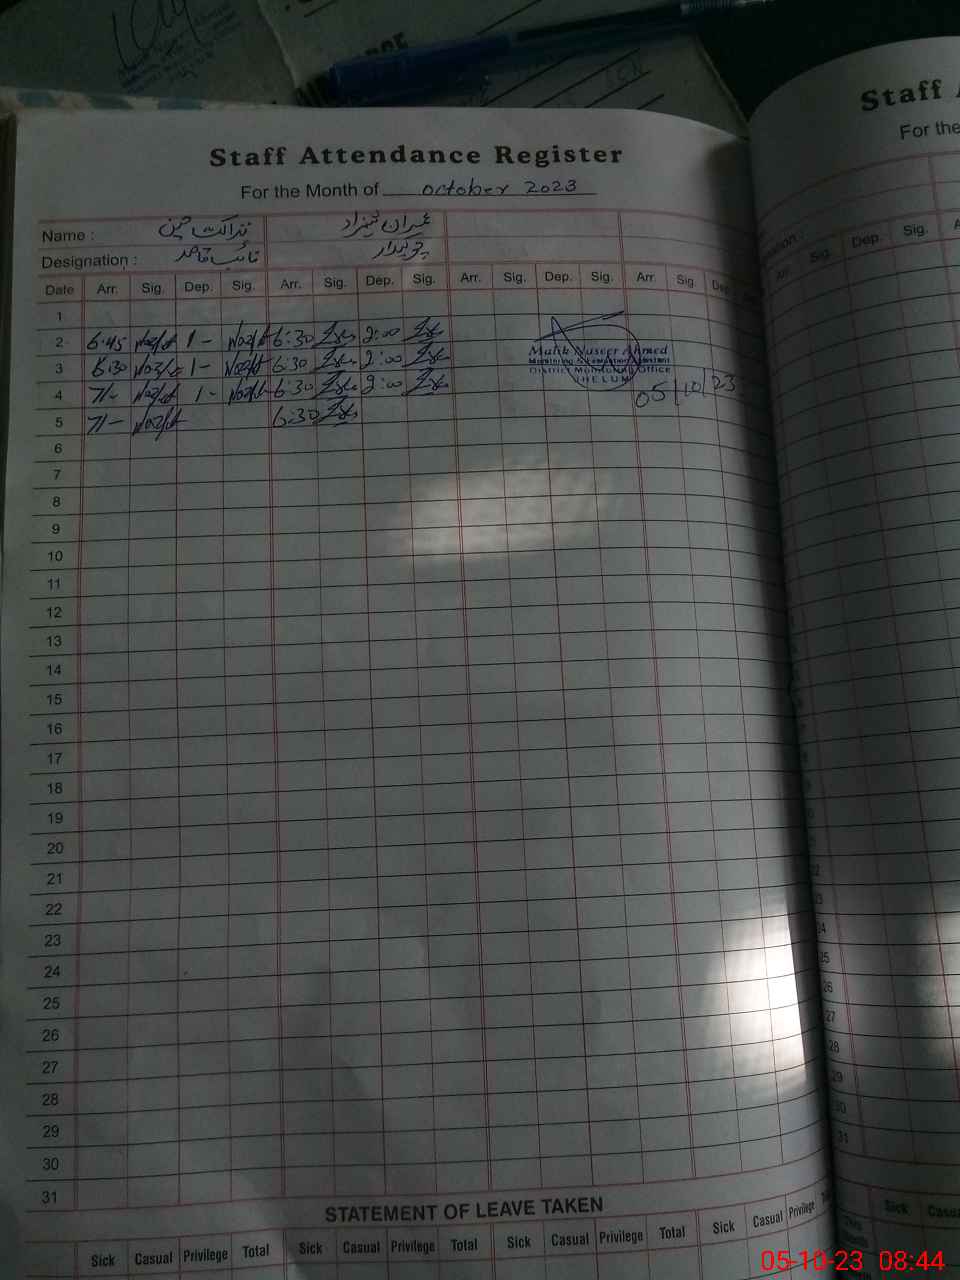 Staff Attendance Register
For the Month of October 2023
Name : نزاکت حسین عمران شہزاد
Designation : نائب قاصد چوکیدار
Date Arr. Sig. Dep. Sig. Arr. Sig. Dep. Sig. Arr. Sig. Dep. Sig. Arr. Sig. Dep.
1
2 6:45 1 - 6:30 2:00
3 6:30 1 - 6:30 2:00
4 7/- 1 - 6:30 2:00
5 7/- 6:30
Malik Naseer Ahmed
Monitoring & Evaluation Assistant
District Monitoring Office
JHELUM
05/10/23
6
7
8
9
10
11
12
13
14
15
16
17
18
19
20
21
22
23
24
25
26
27
28
29
30
31
STATEMENT OF LEAVE TAKEN
Sick Casual Privilege Total Sick Casual Privilege Total Sick Casual Privilege Total Sick Casual Privilege
Staff
For the
Arr. Sig. Dep. Sig.
26
27
28
29
30
31
Sick
05-10-23 08:44